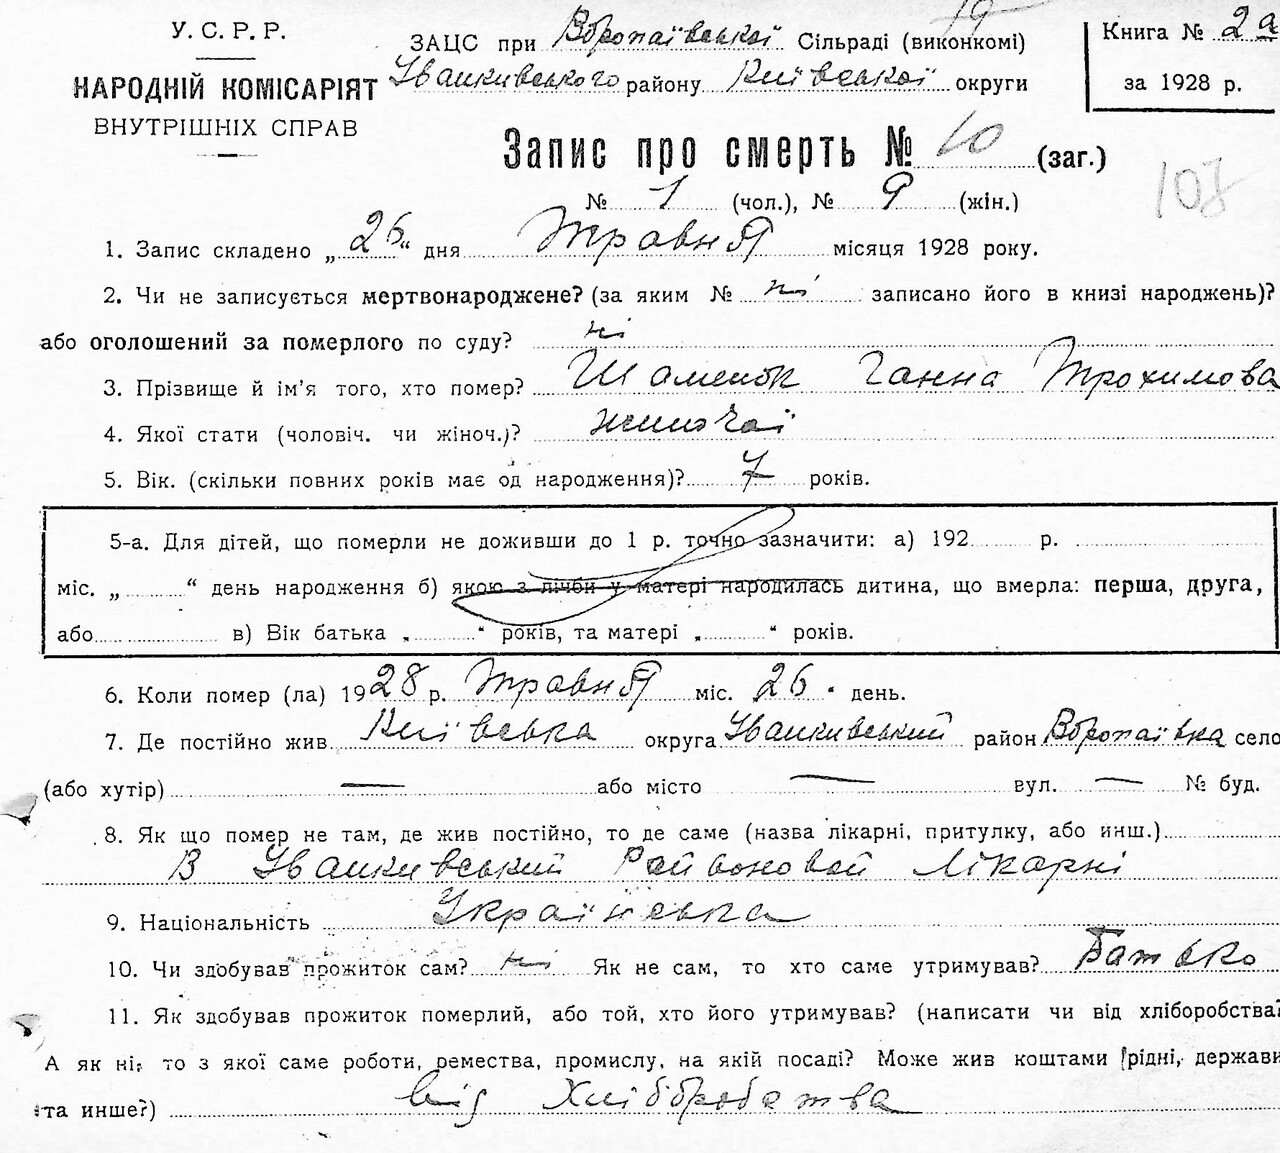 19
У. С. Р. Р.
НАРОДНІЙ КОМІСАРІЯТ
ВНУТРІШНІХ СПРАВ
ЗАЦС при Воропаївської Сільраді (виконкомі)
Іванківського району Київської округи
Книга № 2а
за 1928 р.
Запис про смерть № 10 (заг.)
108
№ 1 (чол.), № 9 (жін.)
1. Запис складено „26“ дня Травня місяця 1928 року.
2. Чи не записується мертвонароджене? (за яким № ні записано його в книзі народжень)?
або оголошений за померлого по суду? ні
3. Прізвище й ім'я того, хто помер? Шоменок Ганна Трохимова
4. Якої стати (чоловіч. чи жіноч.)? жиночої
5. Вік. (скільки повних років має од народження)? 7 років.
5-а. Для дітей, що померли не доживши до 1 р. точно зазначити: а) 192 р.
міс. „ “ день народження б) якою з лічби у матері народилась дитина, що вмерла: перша, друга,
або в) Вік батька „ “ років, та матері „ “ років.
6. Коли помер (ла) 1928 р. Травня міс. 26 день.
7. Де постійно жив Київська округа Іванкивський район Воропаівка село
(або хутір) — або місто — вул. — № буд.
8. Як що помер не там, де жив постійно, то де саме (назва лікарні, притулку, або инш.)
В Іванкивський Районовой Лікарні
9. Національність Українська
10. Чи здобував прожиток сам? ні Як не сам, то хто саме утримував? Батько
11. Як здобував прожиток померлий, або той, хто його утримував? (написати чи від хліборобства?
А як ні, то з якої саме роботи, ремества, промислу, на якій посаді? Може жив коштами рідні, держави
та инше?) від Хліборобства